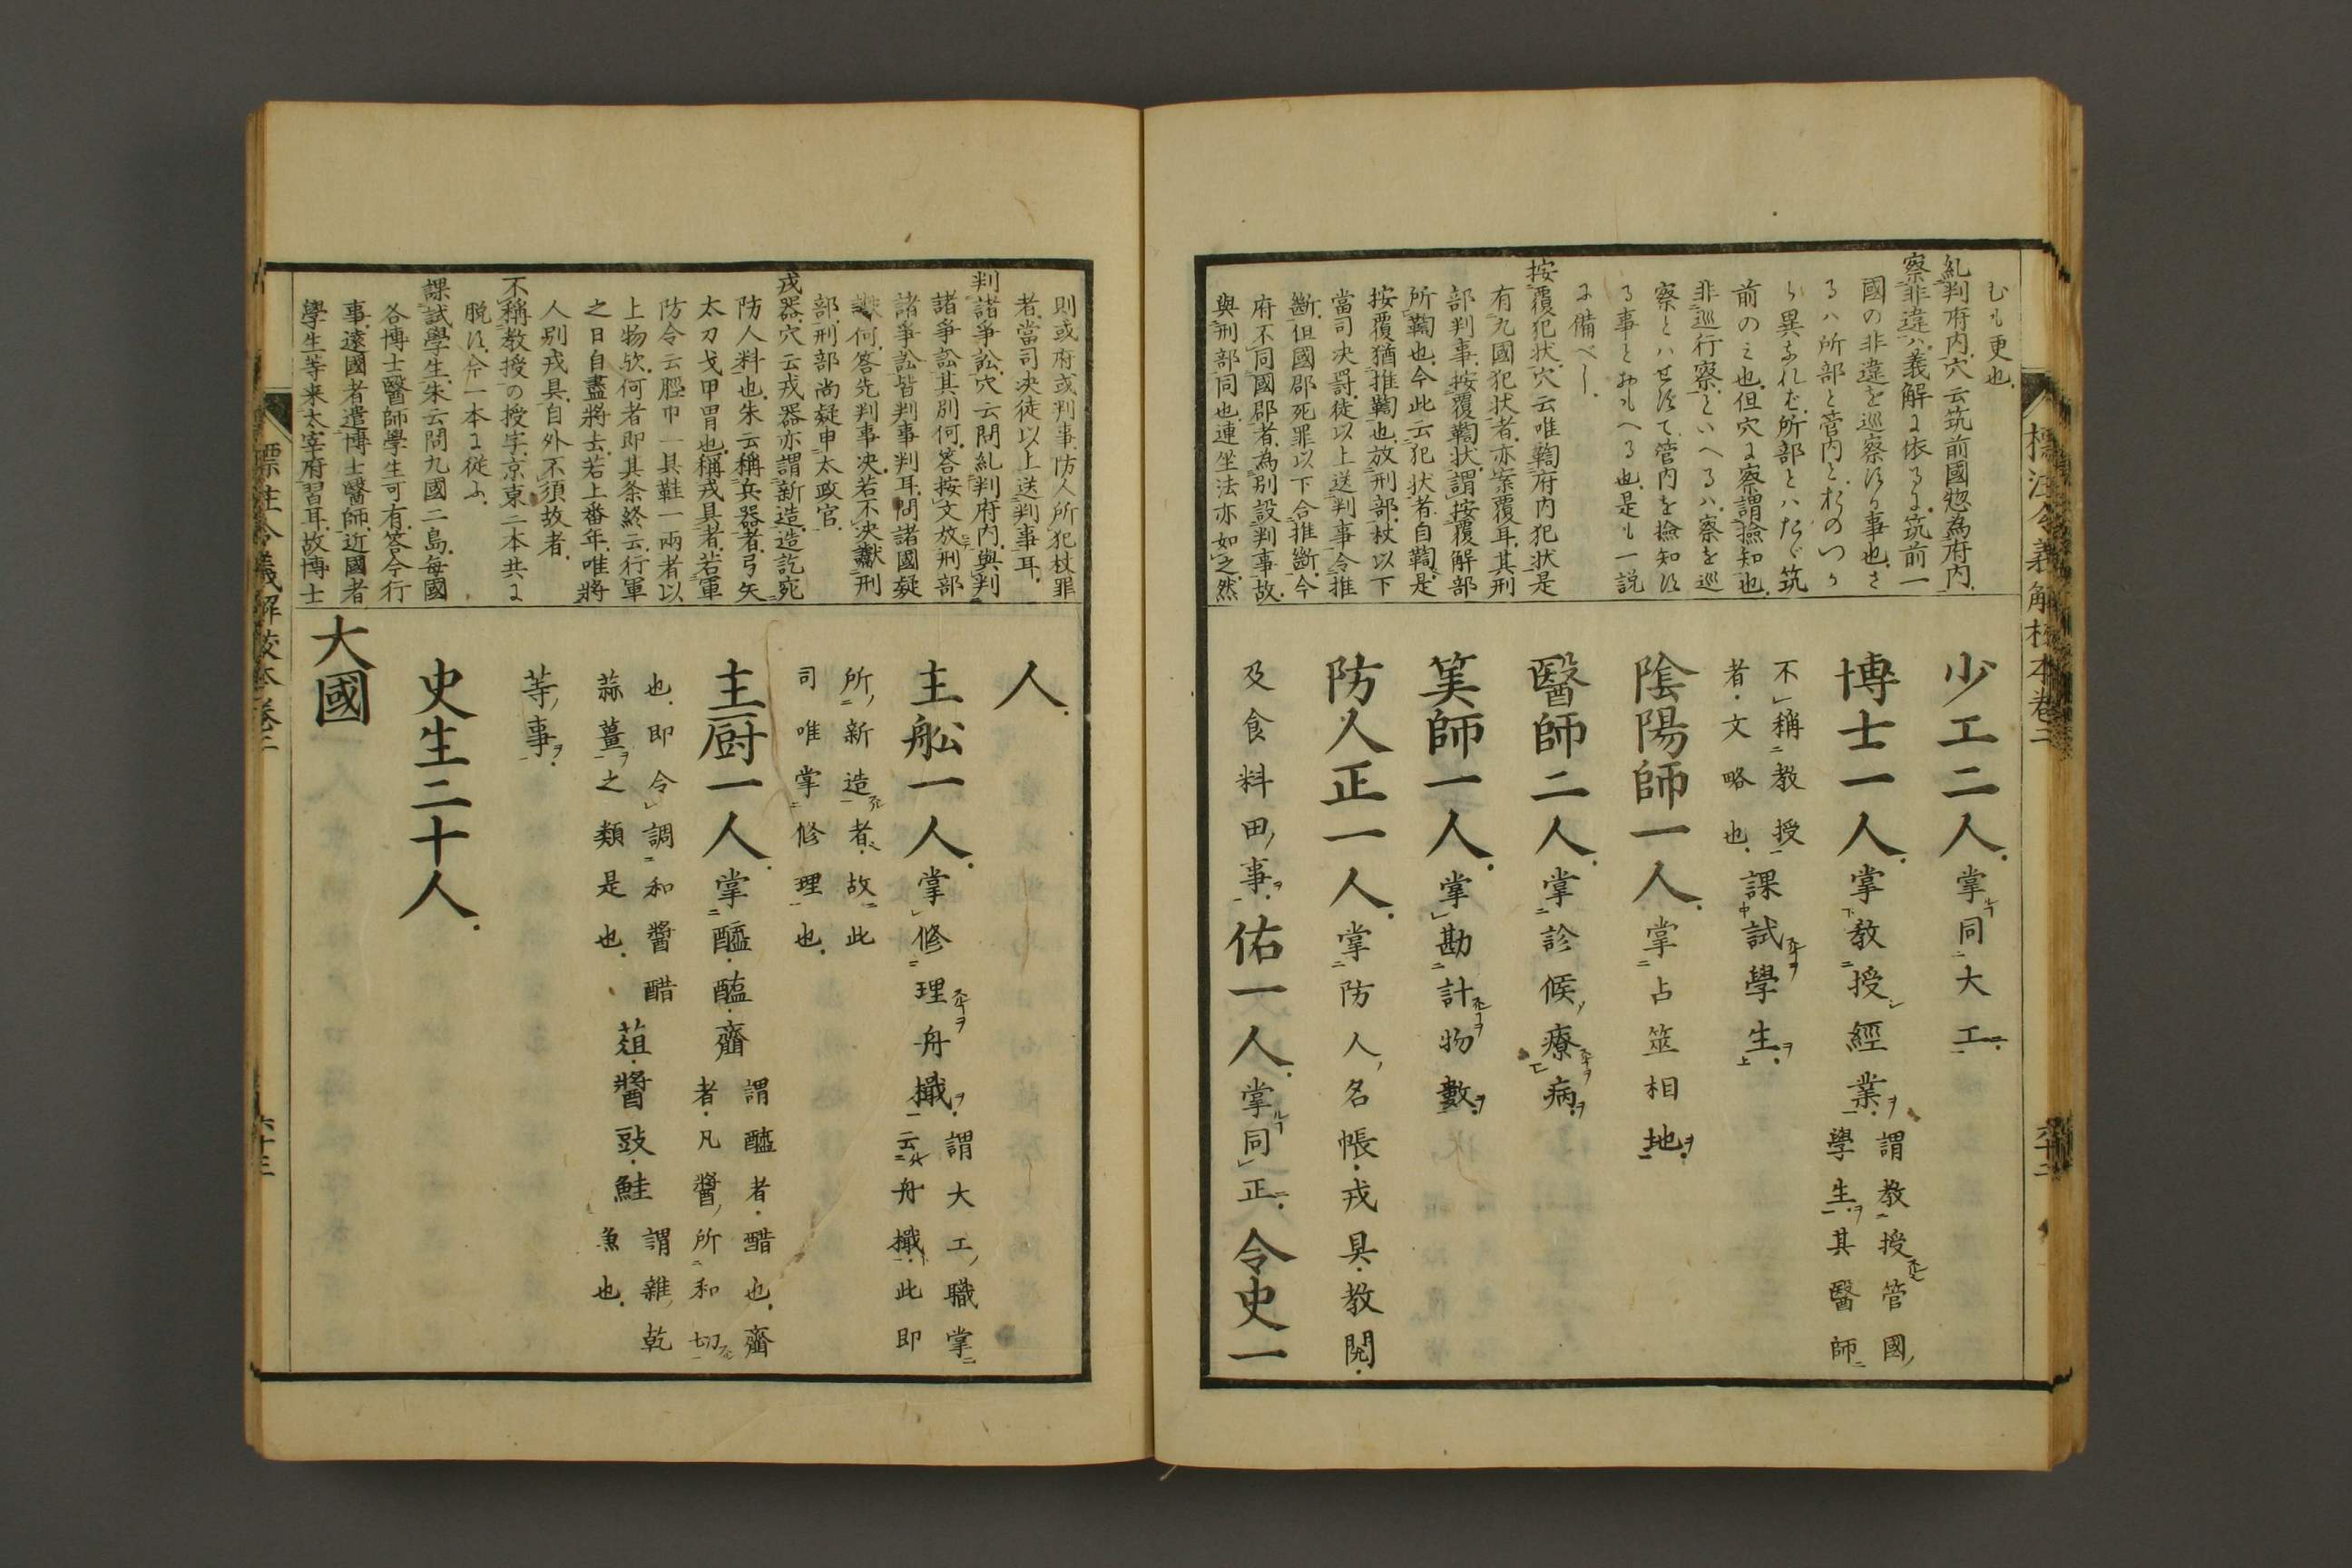 標注令義解校本卷二
六十二
むも更也
糺判府内穴云筑前國惣為府内
察非違ハ義解に依るに筑前一
國の非違を巡察する事也さ
るハ所部と管内と
前の之也但穴に察謂撿知也
非巡行察といへるハ察を巡
察とハせずて管内を撿知す
る事とおもへる也是も一説
に備べし
按覆犯状穴云唯鞫府内犯状是
有九國犯状者亦案覆耳其刑
部判事按覆鞫状謂按覆解部
所鞫也今此云犯状者自鞫是
按覆猶推鞫也放刑部杖以下
當司決罸徒以上送判事令推
斷但國郡死罪以下合推斷今
府不同國郡者為別設判事故
與刑部同也連坐法亦如之然
少工二人掌同大工
博士一人掌教授經業謂教授管國
學生其醫師
不稱教授
者文略也課試學生
陰陽師一人掌占筮相地
醫師二人掌診候療病
筭師一人掌勘計物數
防人正一人掌防人名帳戎具教閲
及食料田事佑一人掌同正令史一
則或府或判事防人所犯杖罪
者當司決徒以上送判事耳
判諸爭訟穴云問糺判府内與判
諸爭訟其別何答按文放刑部
諸爭訟皆判事判耳問諸國疑
獄何答先判事決若不決讞刑
部刑部尚疑申太政官
戎器穴云戎器亦謂新造造訖宛
防人料也朱云稱兵器者弓矢
太刀戈甲冑也稱戎具者若軍
防令云脛巾一具鞋一兩者以
上物欤何者即其条終云行軍
之日自盡將去若上番年唯將
人別戎具自外不須故者
不稱教授の授字京東二本共に
脱す今一本に從ふ
課試學生朱云問九國二島每國
各博士醫師學生可有答令行
事遠國者遣博士醫師近國者
學生等来太宰府習耳故博士
人
主舩一人掌修理舟檝謂大工職掌
云舟檝此即
所新造者故此
司唯掌修理也
主厨一人掌醯醢虀謂醯者醋也虀
者凡醬所和切
也即令調和醬醋
蒜薑之類是也葅醬豉鮭謂雜乾
魚也
等事
史生二十人
大國
標注令義解校本卷二
六十三